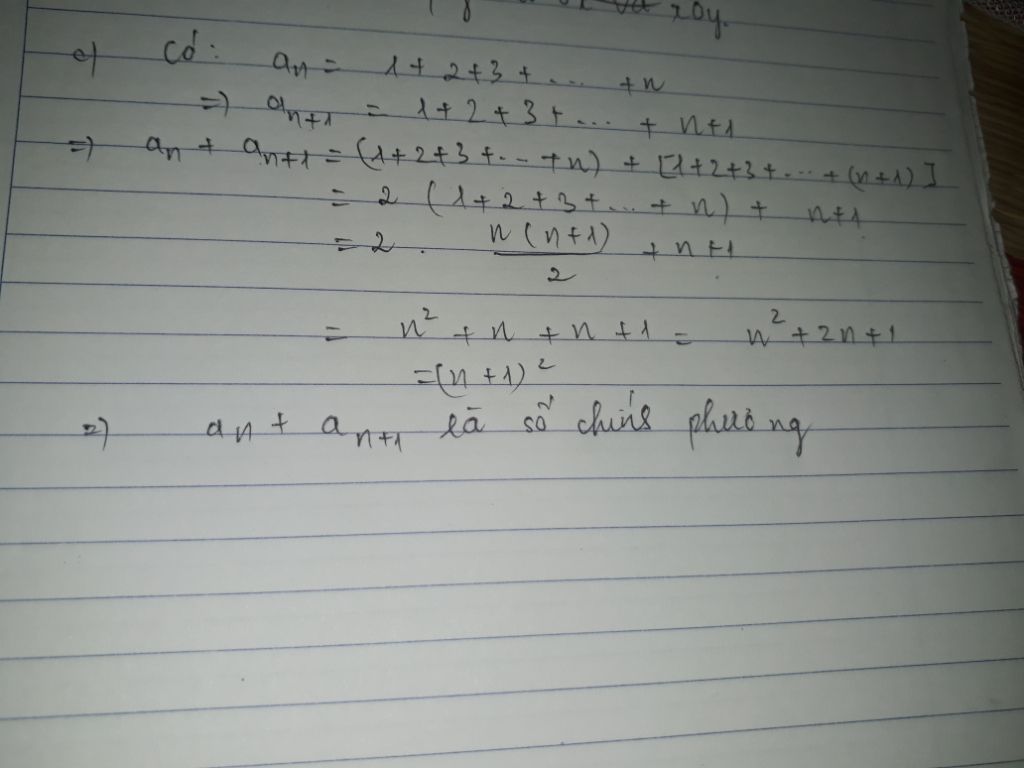 và xOy.
c) Có: aₙ = 1 + 2 + 3 + ... + n
=> aₙ₊₁ = 1 + 2 + 3 + ... + n+1
=> aₙ + aₙ₊₁ = (1+2+3+...+n) + [1+2+3+...+(n+1)]
= 2 (1+2+3+...+n) + n+1
= 2 . n(n+1)/2 + n+1
= n² + n + n + 1 = n² + 2n + 1
= (n+1)²
=> aₙ + aₙ₊₁ là số chính phương